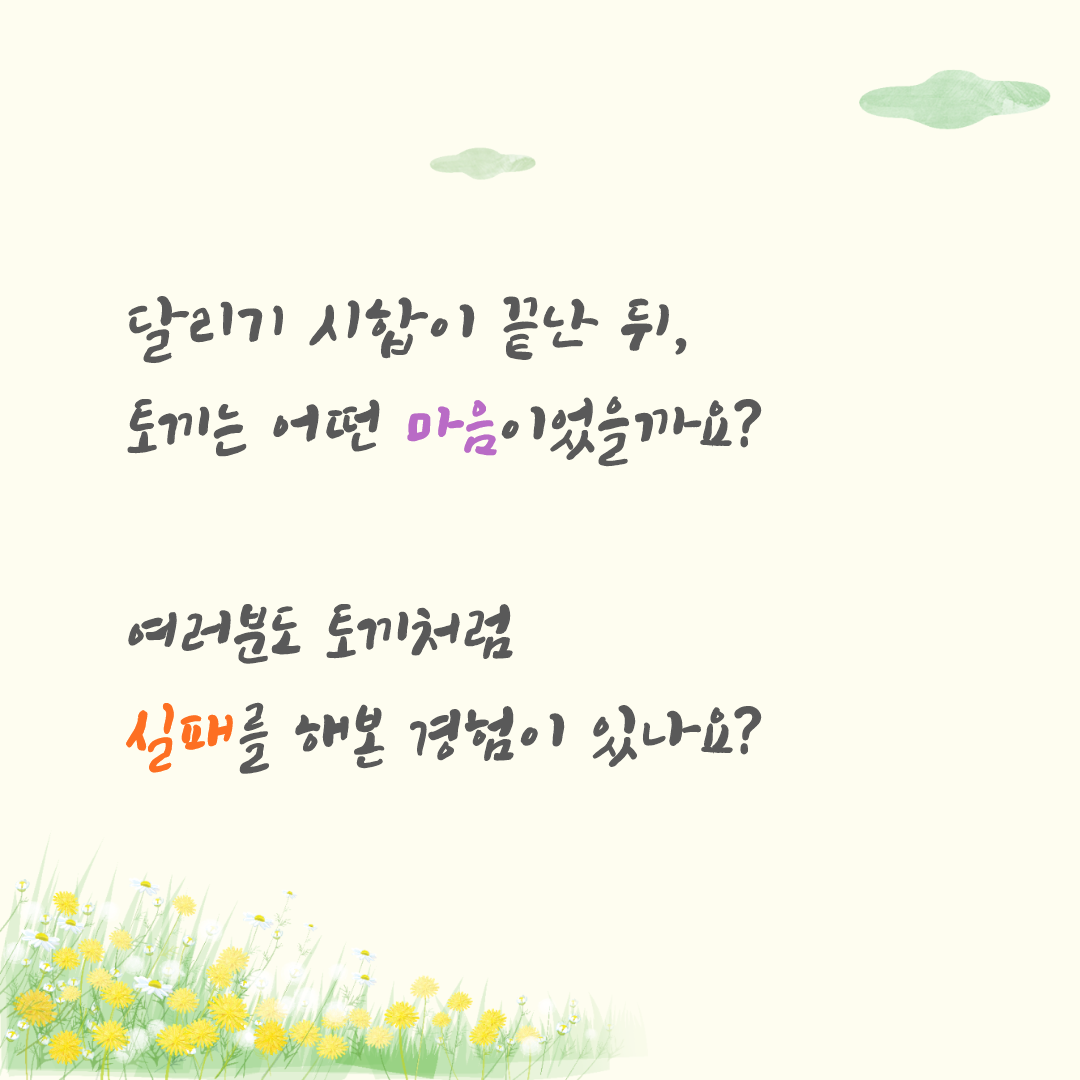 달리기 시합이 끝난 뒤,
토끼는 어떤 마음이었을까요?
여러분도 토끼처럼
실패를 해본 경험이 있나요?